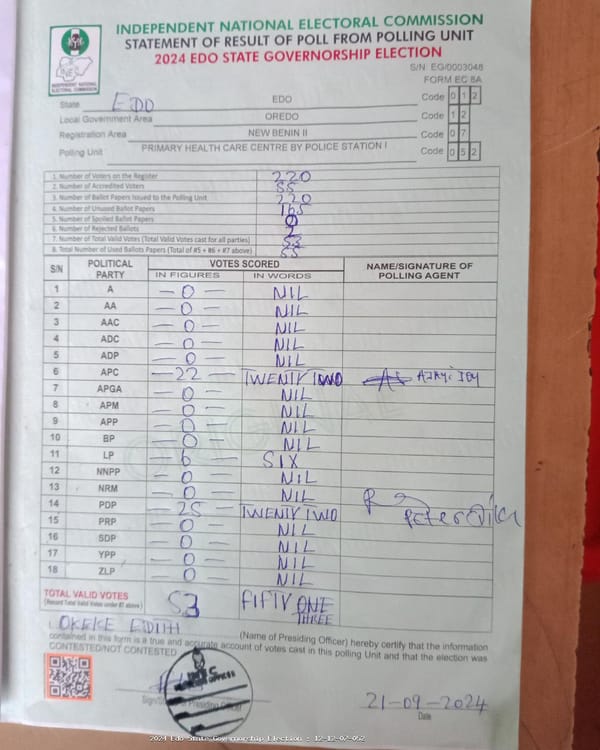 INDEPENDENT NATIONAL ELECTORAL COMMISSION
STATEMENT OF RESULT OF POLL FROM POLLING UNIT
2024 EDO STATE GOVERNORSHIP ELECTION
S/N EG/0003048
FORM EC 8A
INEC
INDEPENDENT NATIONAL ELECTORAL COMMISSION
State EDO EDO Code 0 1 2
Local Government Area OREDO Code 1 2
Registration Area NEW BENIN II Code 0 7
Polling Unit PRIMARY HEALTH CARE CENTRE BY POLICE STATION I Code 0 5 2
1. Number of Voters on the Register 220
2. Number of Accredited Voters 55
3. Number of Ballot Papers Issued to the Polling Unit 220
4. Number of Unused Ballot Papers 165
5. Number of Spoiled Ballot Papers
6. Number of Rejected Ballots 2
7. Number of Total Valid Votes (Total Valid Votes cast for all parties) 53
8. Total Number of Used Ballots Papers (Total of #5 + #6 + #7 above) 55
S/N POLITICAL PARTY VOTES SCORED NAME/SIGNATURE OF POLLING AGENT
IN FIGURES IN WORDS
1 A - 0 - NIL
2 AA - 0 - NIL
3 AAC - 0 - NIL
4 ADC - 0 - NIL
5 ADP - 0 - NIL
6 APC - 22 - TWENTY TWO AJAYI JOY
7 APGA - 0 - NIL
8 APM - 0 - NIL
9 APP - 0 - NIL
10 BP - 0 - NIL
11 LP - 6 - SIX
12 NNPP - 0 - NIL
13 NRM - 0 - NIL
14 PDP - 25 - TWENTY TWO Peter
15 PRP - 0 - NIL
16 SDP - 0 - NIL
17 YPP - 0 - NIL
18 ZLP - 0 - NIL
TOTAL VALID VOTES 53 FIFTY ONE
(Record Total Valid Votes under #7 above) THREE
I OKEKE EDITH (Name of Presiding Officer) hereby certify that the information
contained in this form is a true and accurate account of votes cast in this polling Unit and that the election was
CONTESTED/NOT CONTESTED
INEC
21-09-2024
Date
2024 Edo State Governorship Election : 12-12-07-052